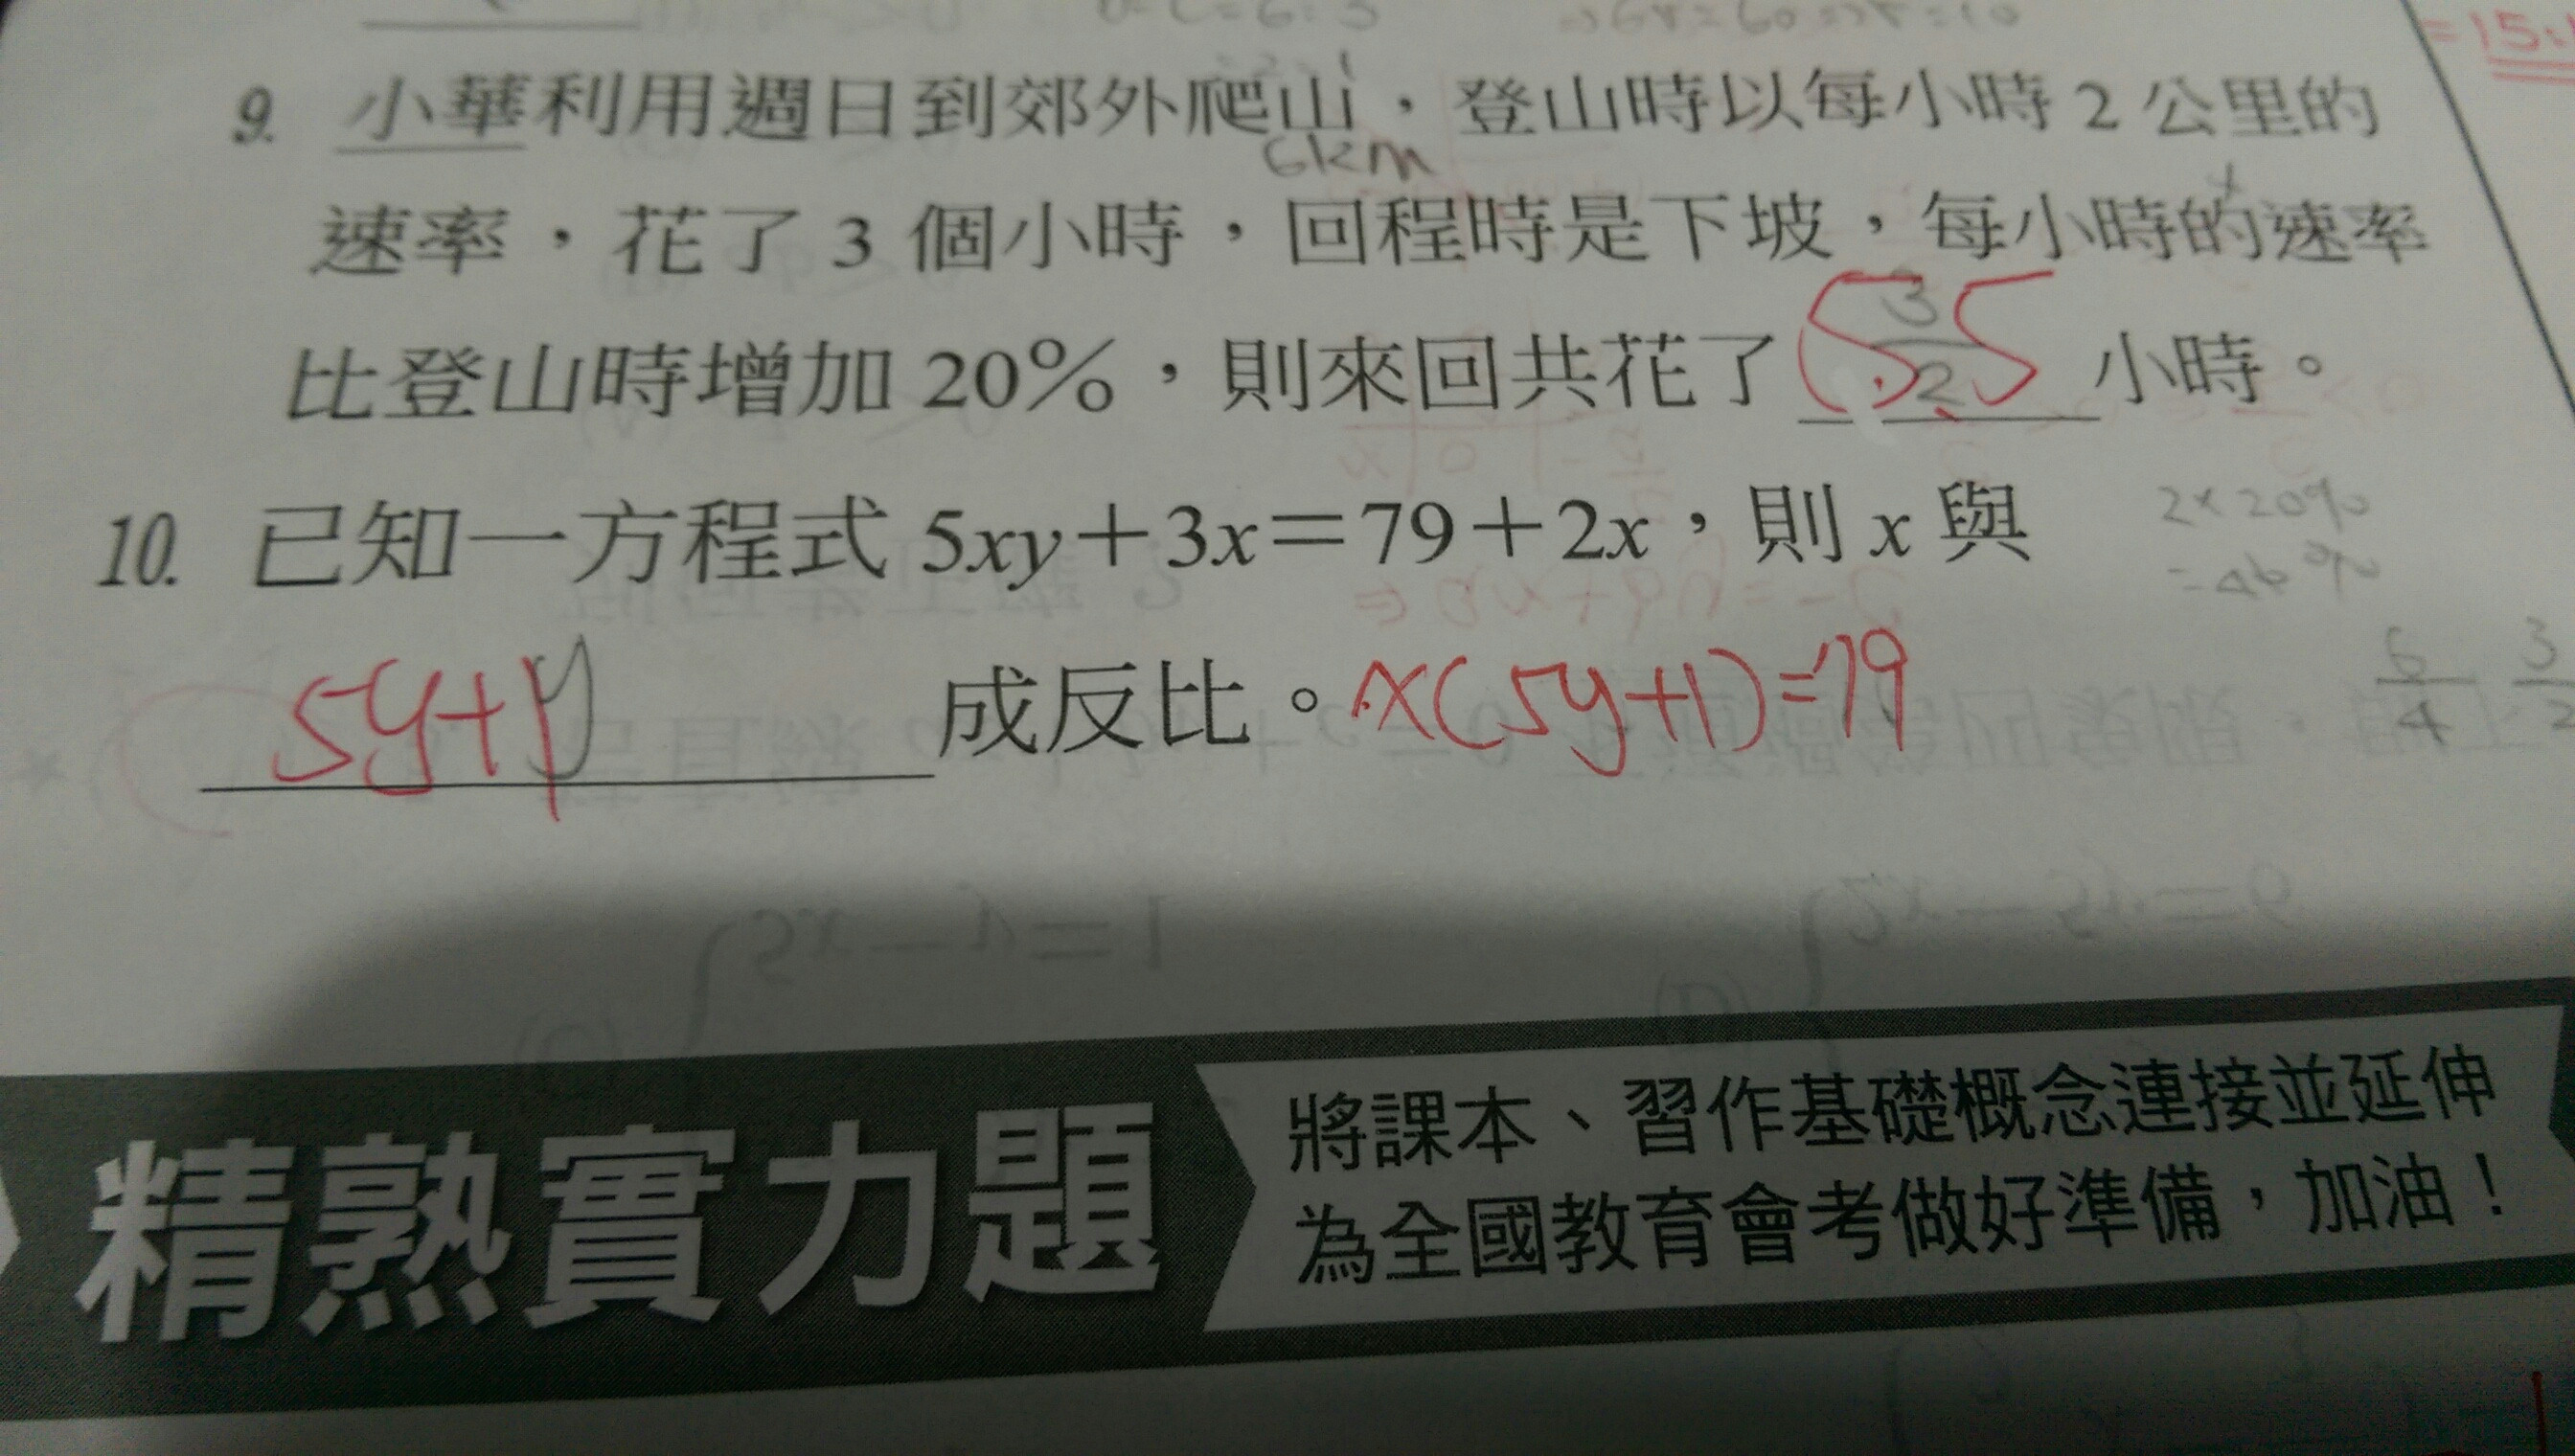 = 15:
9. 小華利用週日到郊外爬山，登山時以每小時 2 公里的
6km
x
速率，花了 3 個小時，回程時是下坡，每小時的速率
比登山時增加 20%，則來回共花了 5.5 小時。
3
2
10. 已知一方程式 5xy＋3x＝79＋2x，則 x 與
2×20%
5y+1 成反比。x(5y+1)=79
6
4
3
2
精熟實力題
將課本、習作基礎概念連接並延伸
為全國教育會考做好準備，加油！